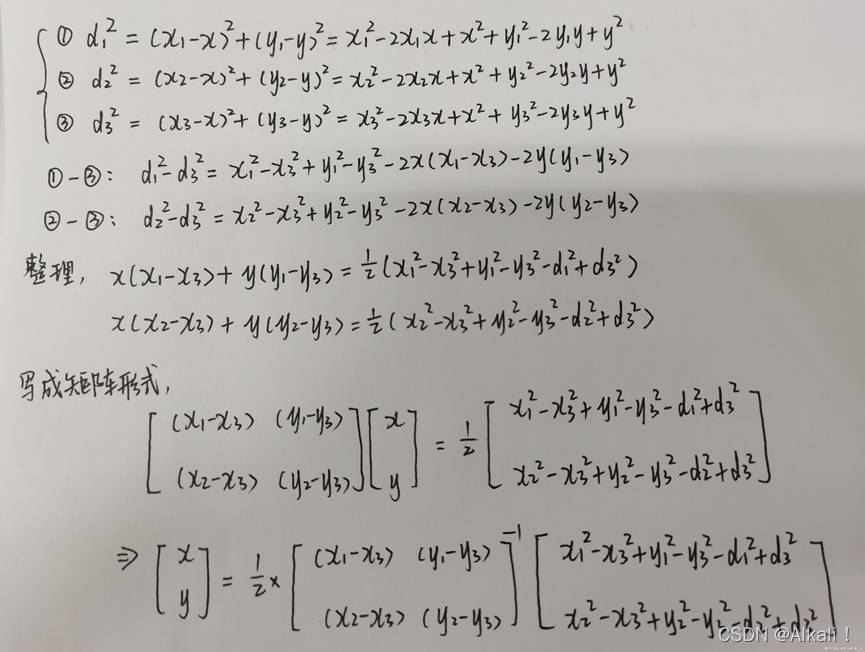 ① d₁² = (x₁-x)²+(y₁-y)² = x₁²-2x₁x+x²+y₁²-2y₁y+y²
② d₂² = (x₂-x)²+(y₂-y)² = x₂²-2x₂x+x²+y₂²-2y₂y+y²
③ d₃² = (x₃-x)²+(y₃-y)² = x₃²-2x₃x+x²+y₃²-2y₃y+y²
①-③: d₁²-d₃² = x₁²-x₃²+y₁²-y₃²-2x(x₁-x₃)-2y(y₁-y₃)
②-③: d₂²-d₃² = x₂²-x₃²+y₂²-y₃²-2x(x₂-x₃)-2y(y₂-y₃)
整理, x(x₁-x₃)+y(y₁-y₃) = ½(x₁²-x₃²+y₁²-y₃²-d₁²+d₃²)
x(x₂-x₃)+y(y₂-y₃) = ½(x₂²-x₃²+y₂²-y₃²-d₂²+d₃²)
写成矩阵形式,
[(x₁-x₃) (y₁-y₃)] [x] = ½ [x₁²-x₃²+y₁²-y₃²-d₁²+d₃²]
[(x₂-x₃) (y₂-y₃)] [y] [x₂²-x₃²+y₂²-y₃²-d₂²+d₃²]
⇒ [x] = ½× [(x₁-x₃) (y₁-y₃)]⁻¹ [x₁²-x₃²+y₁²-y₃²-d₁²+d₃²]
[y] [(x₂-x₃) (y₂-y₃)] [x₂²-x₃²+y₂²-y₃²-d₂²+d₃²]
CSDN @Alkali！